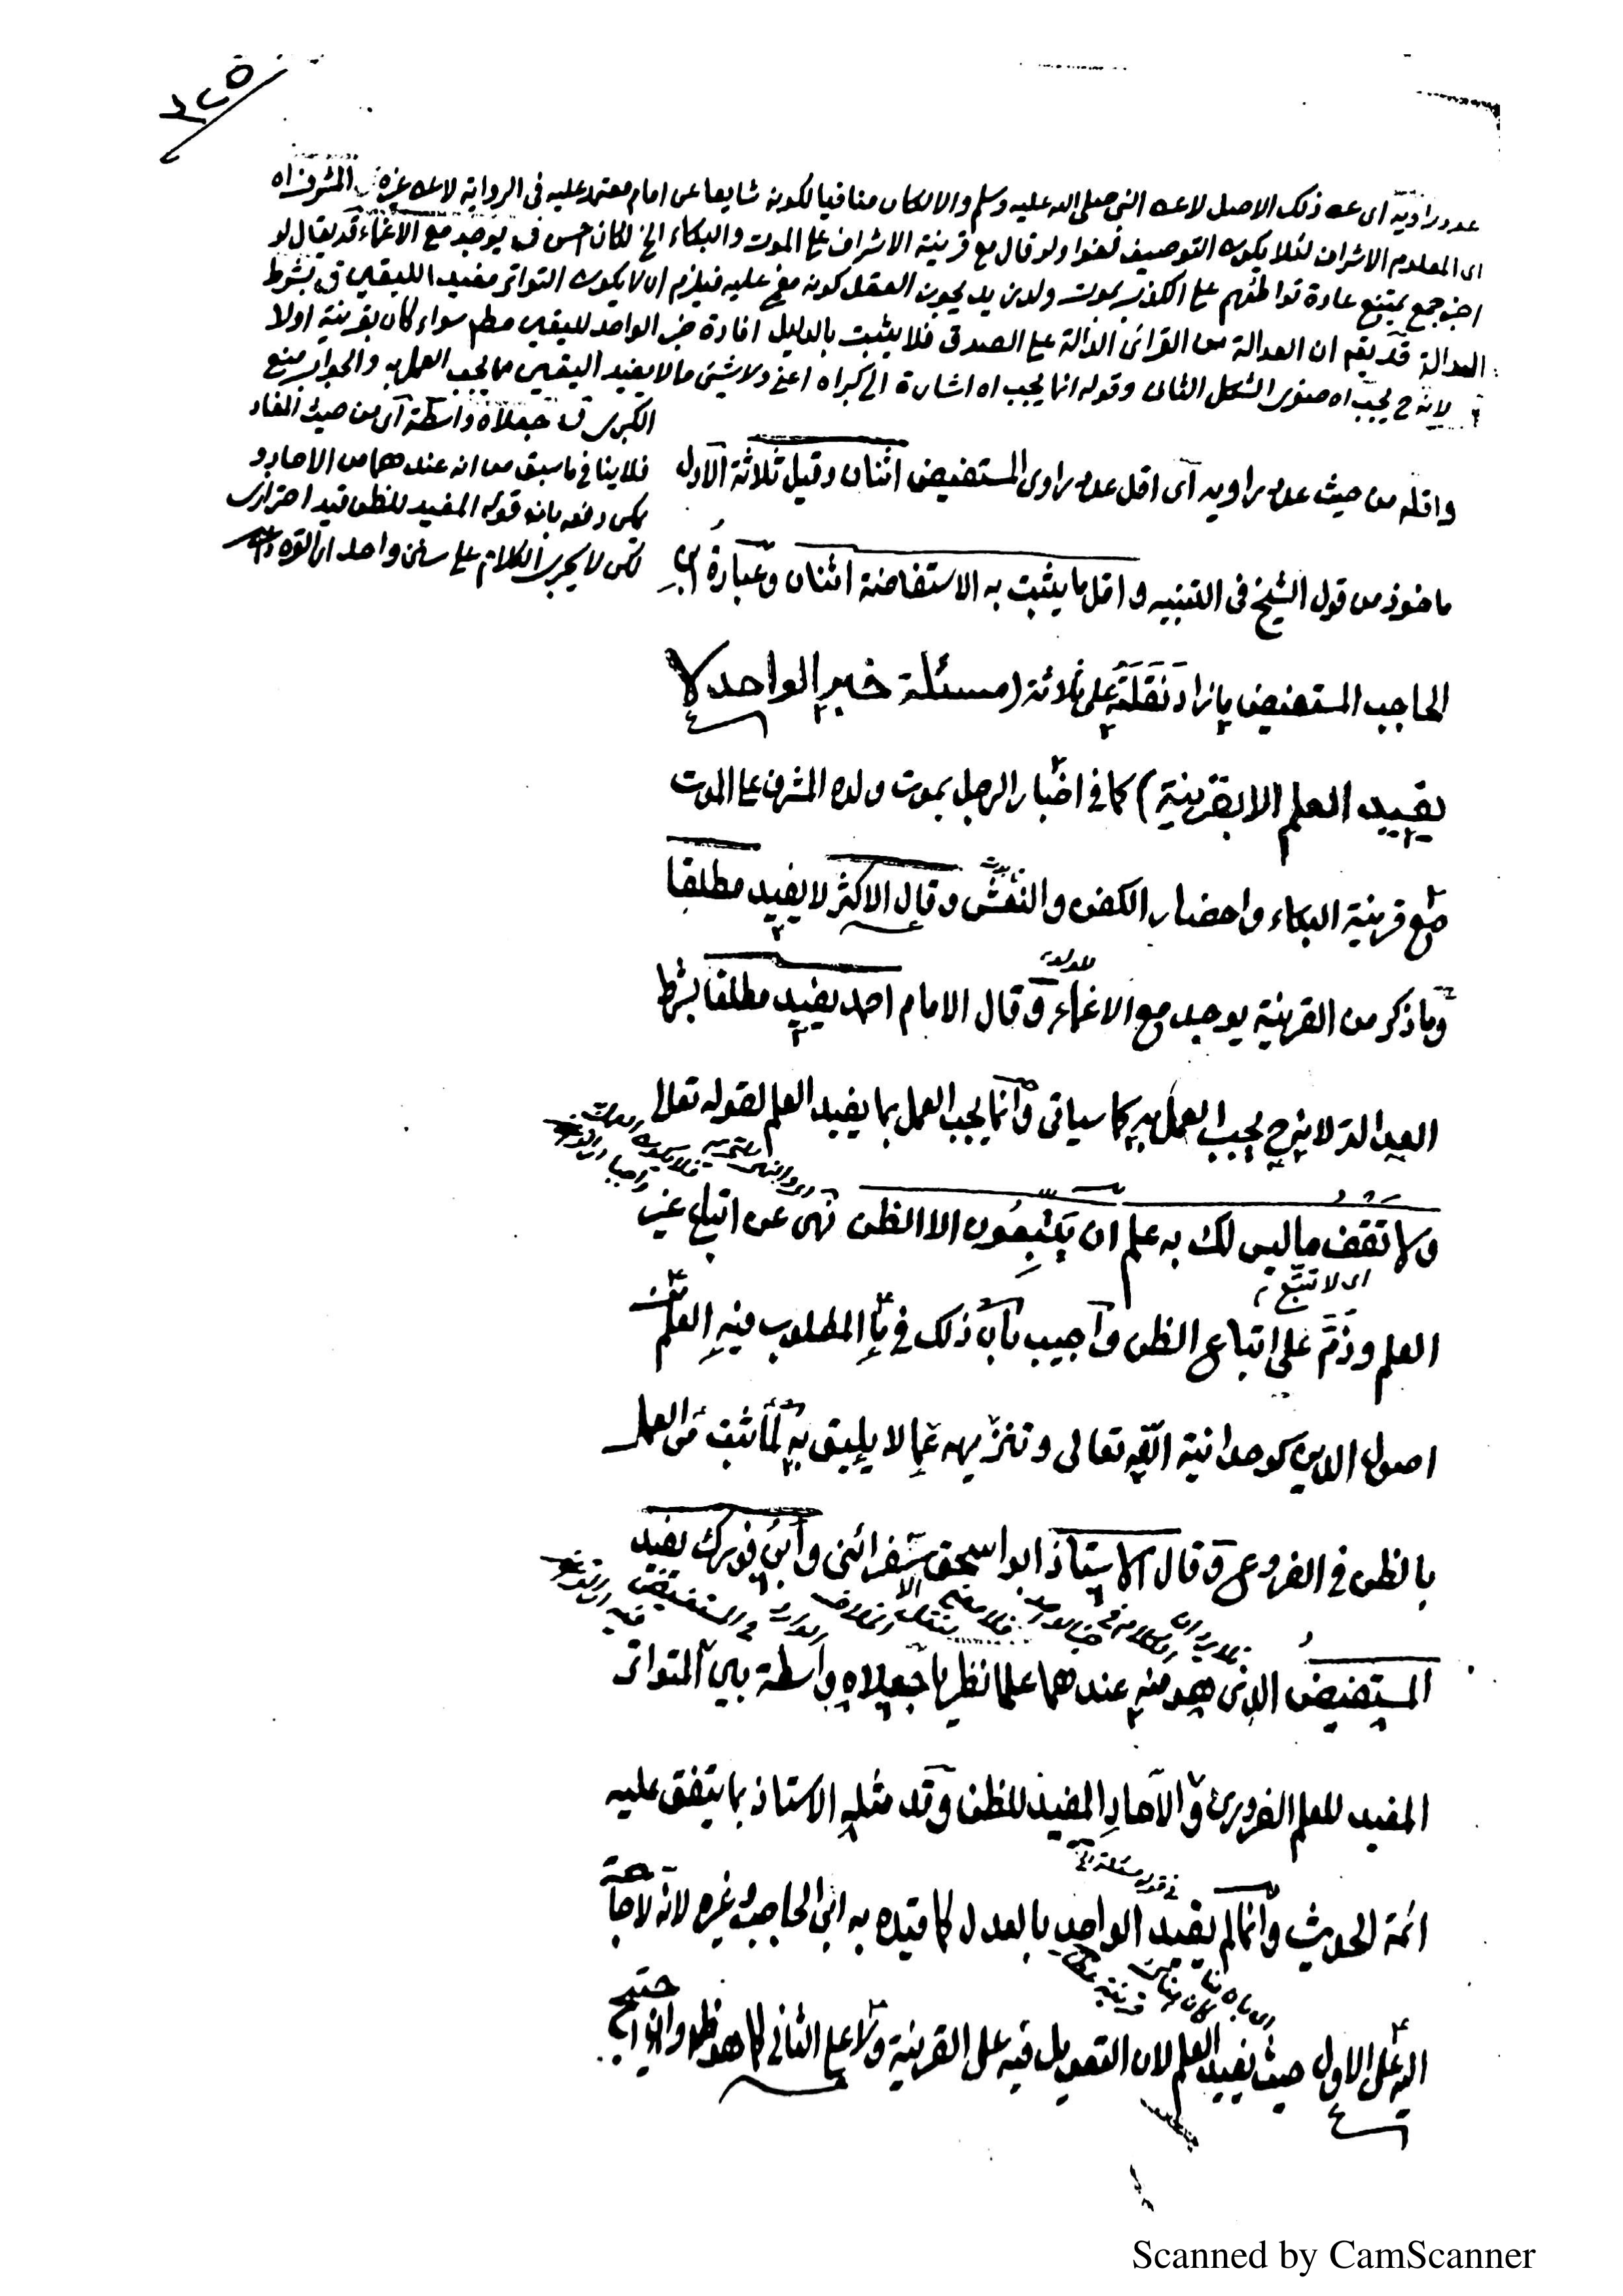 ٣٤٥
عدد راويه اى عن ذلك الاصل لا عن النبى صلى الله عليه وسلم والا لكان منافيا لكونه شايعا عن امام معتمد عليه فى الرواية لا عن غيره المشرف اه
اى المعلوم الاشراف لئلا يكون التوصيف لغوا ولو قال مع قرينة الاشراف على الموت والبكاء الخ لكان احسن يوجد مع الاغماء قد يقال لو
اخبر جمع يمتنع عادة تواطئهم على الكذب بموت ولد زيد يجوز العقل كونه مغمى عليه فيلزم ان لا يكون التواتر مفيدا لليقين بشرط
العدالة قد يقم ان العدالة من القرائن الدالة على الصدق فلا يثبت بالدليل افادة خبر الواحد لليقين مطم سواء كان بقرينة اولا
لانه ح يجب اه صغرى الشكل الثانى وقوله انما يجب اه اشارة الى كبراه اعنى ولا شيئ مما لا يفيد اليقين مما يجب العمل به والجواب منع
الكبرى جعلاه واسطة اى من حيث المفاد
فلا ينافى ما سبق من انه عندهما من الاحاد و
يمكن دفعه بان قوله المفيد للظن قيد احترازى
لكن لا يجرى الكلام على سنن واحد
واقله من حيث عدد راويه اى اقل عدد راوى المستفيض اثنان وقيل ثلاثة الاول
ماخوذ من قول الشيخ فى التنبيه واقل ما يثبت به الاستفاضة اثنان وعبارة ابن
الحاجب المستفيض ما زاد نَقَلَتُه على ثلاثة (مسئلة خبر الواحد لا
يفيد العلم الا بقرينة) كما فى اخبار الرجل بموت ولده المشرف على الموت
مع قرينة البكاء واحضار الكفن والنعش وقال الاكثر لا يفيد مطلقا
وما ذكر من القرينة يوجد مع الاغماء وقال الامام احمد يفيد مطلقا بشرط
للولد
العدالة لانه ح يجب العمل به كما سياتى وانما يجب العمل بما يفيد العلم لقوله تعالى
ولا تقف ما ليس لك به علم ان يَتَّبِعُون الا الظن نهى عن اتباع غير
اى لا تتبع
العلم وذَمَّ على اتباع الظن واجيب بان ذلك فى ما المطلوب فيه العلم من
اصول الدين كوحدانية الله تعالى وتنزيهه عما لا يليق به لما ثبت من العمل
بالظن فى الفروع وقال الاستاذ ابو اسحق الاسفرائنى وابن فورك يفيد
المستفيض الذى هو منه عندهما علما نظريا جعلاه واسطة بين المتواتر
المفيد للعلم الضرورى والاحاد المفيد للظن وقد مثله الاستاذ بما يتفق عليه
ائمة الحديث وانما لم يقيد الواحد بالعدل كما قيده به ابن الحاجب وغيره لانه لا حاجة
اليه على الاول حيث يفيد العلم لان التعويل فيه على القرينة ولا على الثانى كما هو ظ وان احتيج
Scanned by CamScanner